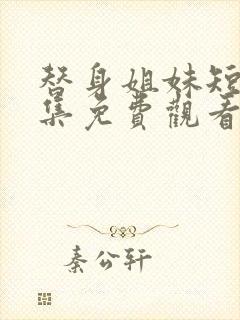 替身姐妹短
集免費觀看
秦公轩